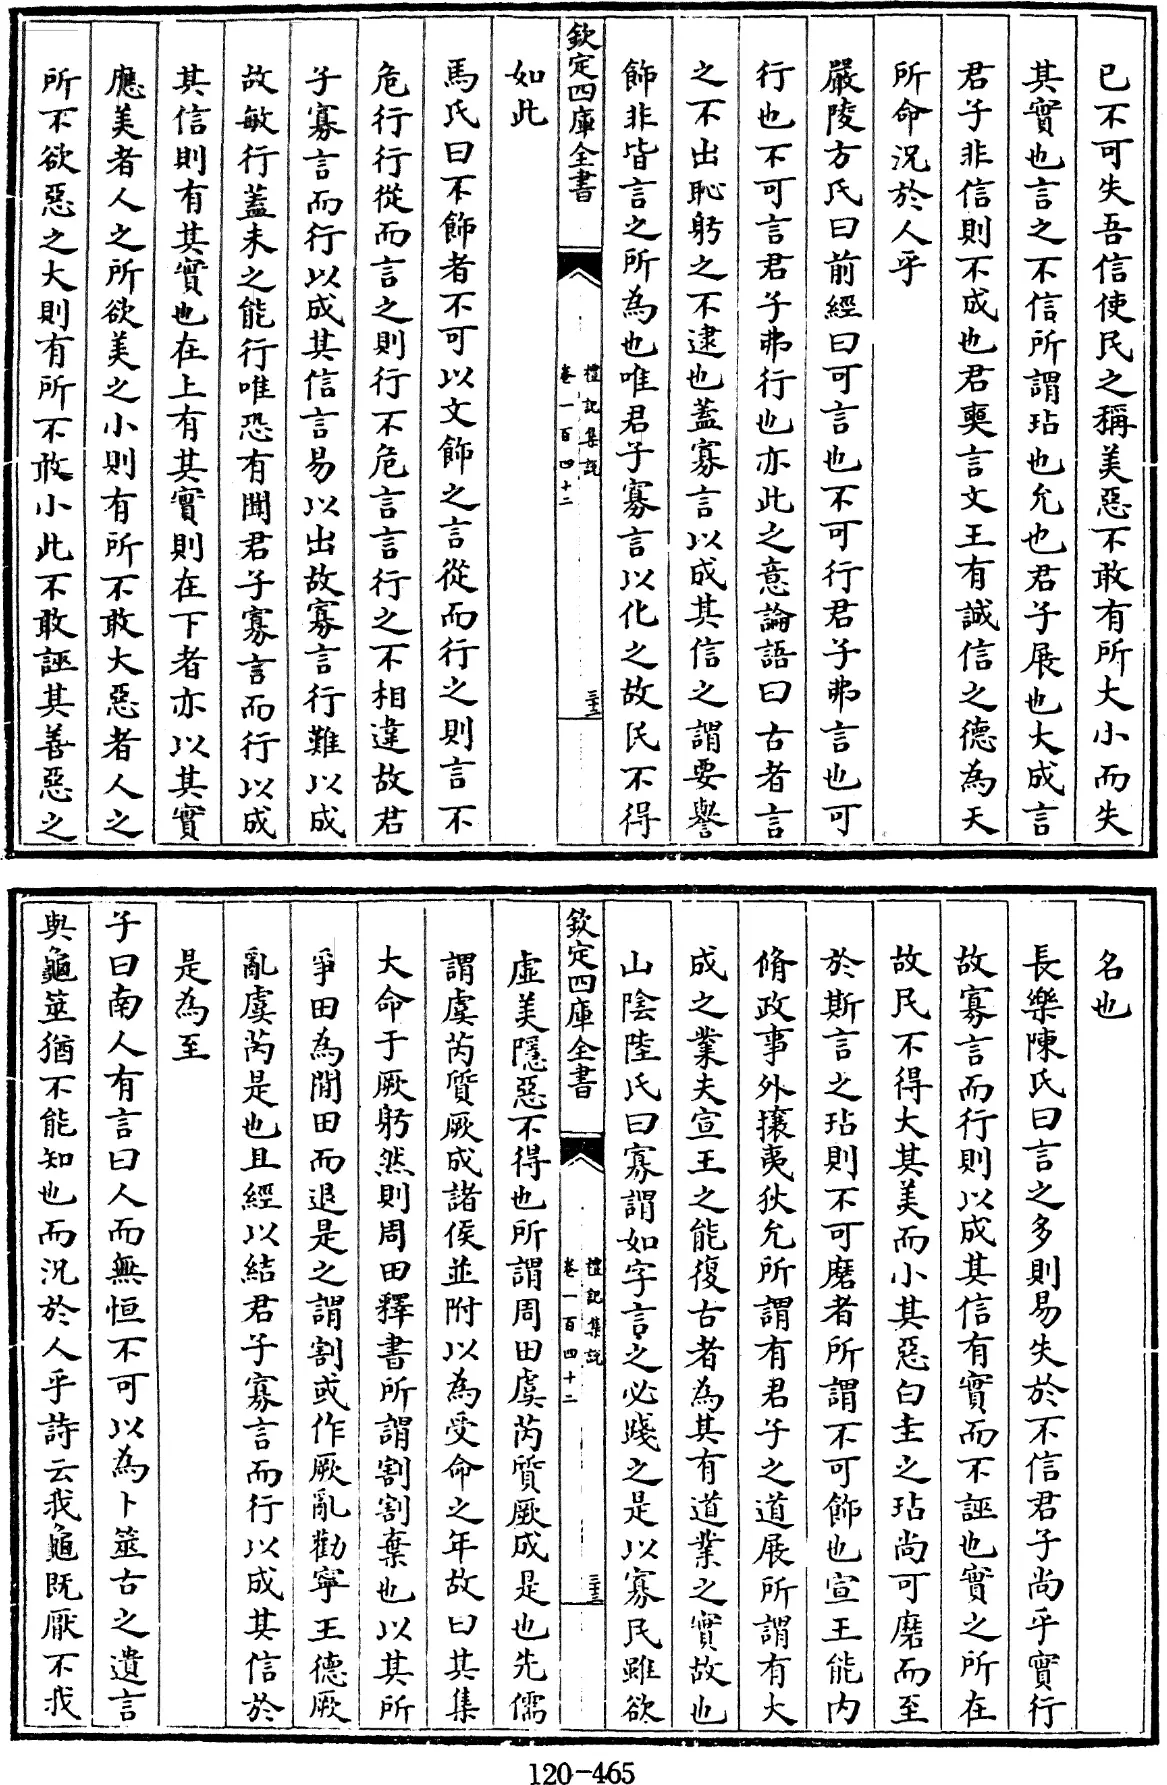 已不可失吾信使民之稱美惡不敢有所大小而失
其實也言之不信所謂玷也允也君子展也大成言
君子非信則不成也君奭言文王有誠信之德為天
所命況於人乎
嚴陵方氏曰前經曰可言也不可行君子弗言也可
行也不可言君子弗行也亦此之意論語曰古者言
之不出恥躬之不逮也蓋寡言以成其信之謂要譽
飾非皆言之所為也唯君子寡言以化之故民不得
欽定四庫全書
禮記集說
卷一百四十二
三十三
如此
馬氏曰不飾者不可以文飾之言從而行之則言不
危行行從而言之則行不危言言行之不相違故君
子寡言而行以成其信言易以出故寡言行難以成
故敏行蓋未之能行唯恐有聞君子寡言而行以成
其信則有其實也在上有其實則在下者亦以其實
應美者人之所欲美之小則有所不敢大惡者人之
所不欲惡之大則有所不敢小此不敢誣其善惡之
名也
長樂陳氏曰言之多則易失於不信君子尚乎實行
故寡言而行則以成其信有實而不誣也實之所在
故民不得大其美而小其惡白圭之玷尚可磨而至
於斯言之玷則不可磨者所謂不可飾也宣王能內
脩政事外攘夷狄允所謂有君子之道展所謂有大
成之業夫宣王之能復古者為其有道業之實故也
山陰陸氏曰寡謂如字言之必踐之是以寡民雖欲
欽定四庫全書
禮記集說
卷一百四十二
三十三
虛美隱惡不得也所謂周田虞芮質厥成是也先儒
謂虞芮質厥成諸侯並附以為受命之年故曰其集
大命于厥躬然則周田釋書所謂割割棄也以其所
爭田為閒田而退是之謂割或作厥亂勸寧王德厥
亂虞芮是也且經以結君子寡言而行以成其信於
是為至
子曰南人有言曰人而無恒不可以為卜筮古之遺言
與龜筮猶不能知也而況於人乎詩云我龜既厭不我
120-465